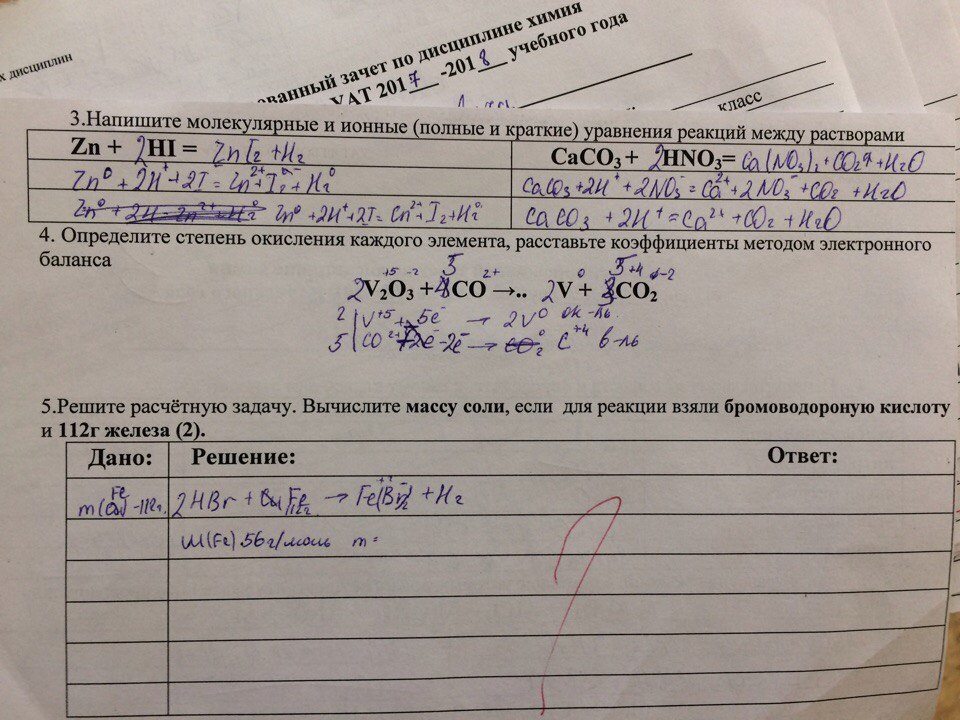 х дисциплин
ованный зачет по дисциплине химия
УАТ 2017 -2018 учебного года
класс
3.Напишите молекулярные и ионные (полные и краткие) уравнения реакций между растворами
Zn + 2HI = ZnI2 + H2
CaCO3 + 2HNO3= Ca(NO3)2 + CO2 + H2O
Zn0 + 2H+ + 2I- = Zn2+ + I2- + H20
CaCO3 + 2H+ + 2NO3- = Ca2+ + 2NO3- + CO2 + H2O
Zn0 + 2H = Zn2+ + H20 Zn0 + 2H+ + 2I = Zn2+ + I2 + H20
CaCO3 + 2H+ = Ca2+ + CO2 + H2O
4. Определите степень окисления каждого элемента, расставьте коэффициенты методом электронного
баланса
+5 -2 5 2+ 0 5 +4 -2
2V2O3 + CO →.. 2V + CO2
2 | V+5 + 5e- → 2V0 ок-ль.
5 | CO2+ -2e- → C+4 в-ль
5.Решите расчётную задачу. Вычислите массу соли, если для реакции взяли бромоводороную кислоту
и 112г железа (2).
Дано: Решение: Ответ:
m(Fe) -112г. 2HBr + Fe → Fe(Br)2 + H2
112г.
M(Fe) 56г/моль m =